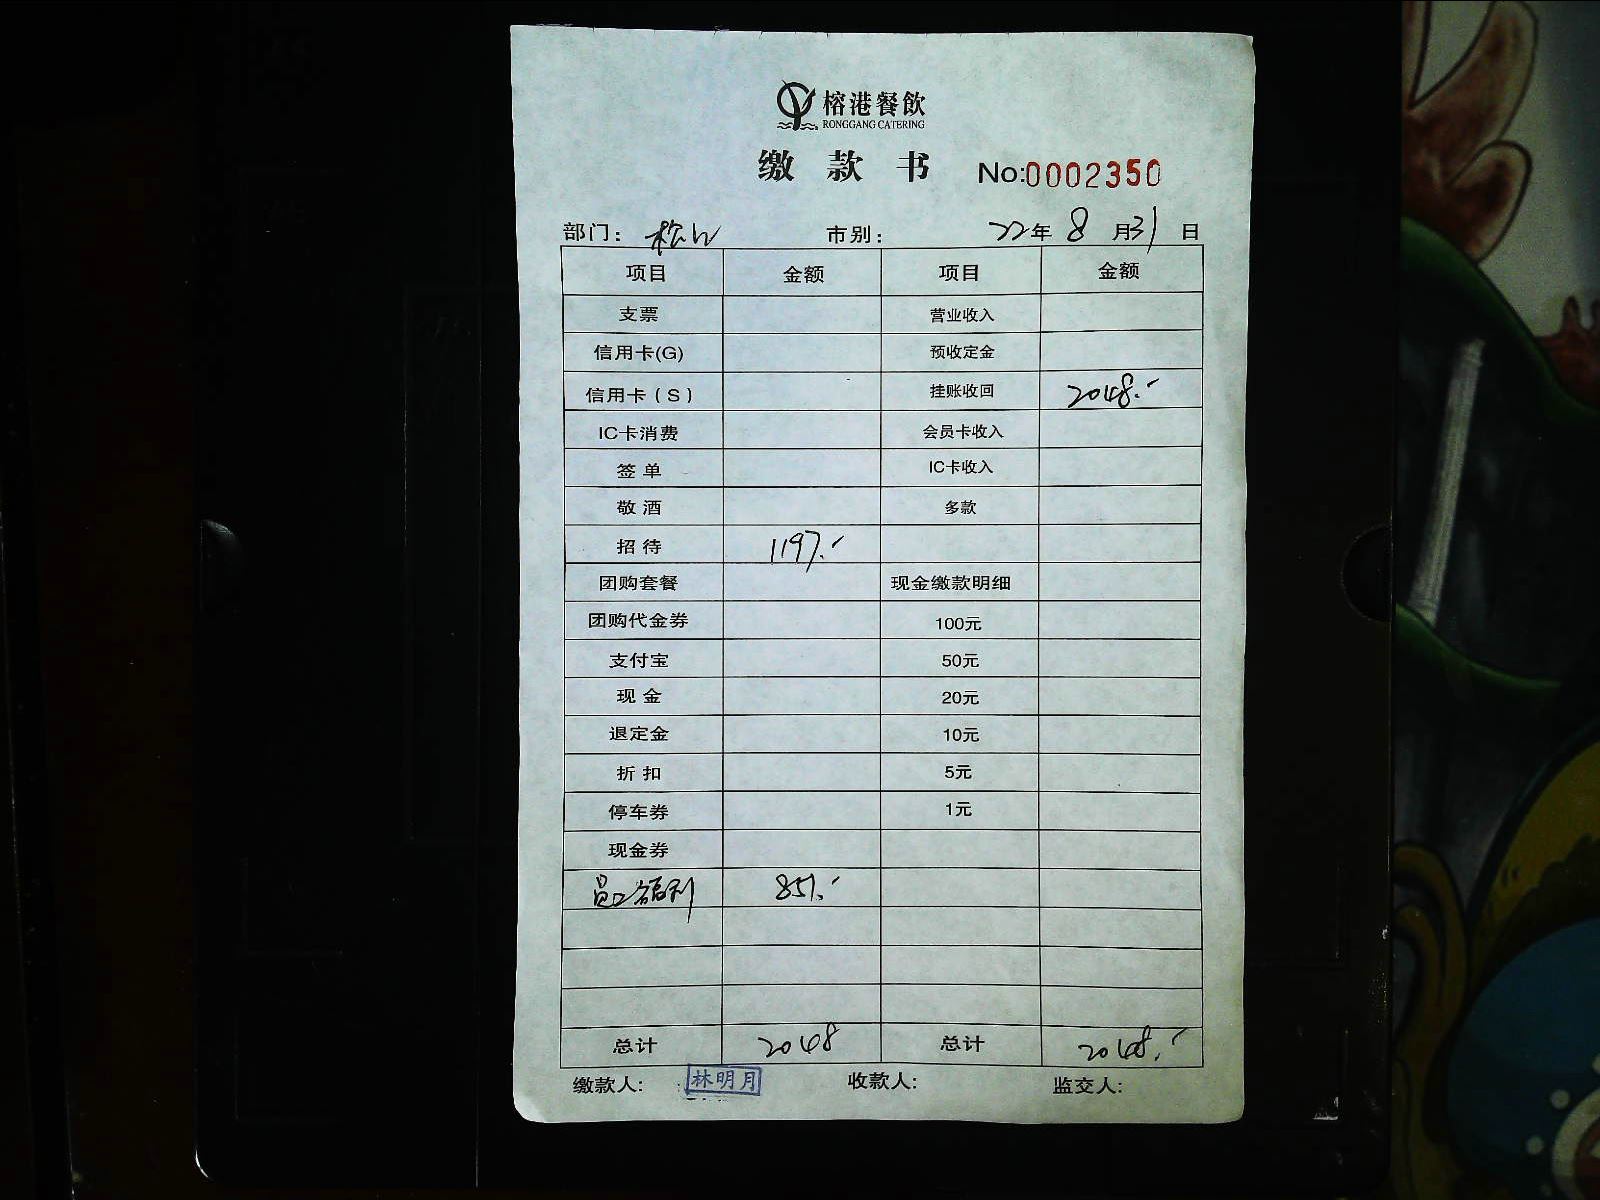 榕港餐飲
RONGGANG CATERING
缴款书 No:0002350
部门: 市别: 22年8月31日
项目 金额 项目 金额
支票 营业收入
信用卡(G) 预收定金
信用卡(S) 挂账收回 2048.-
IC卡消费 会员卡收入
签单 IC卡收入
敬酒 多款
招待 1197.-
团购套餐 现金缴款明细
团购代金券 100元
支付宝 50元
现金 20元
退定金 10元
折扣 5元
停车券 1元
现金券
员工福利 851.-
总计 2048 总计 2048.-
缴款人: 林明月 收款人: 监交人: